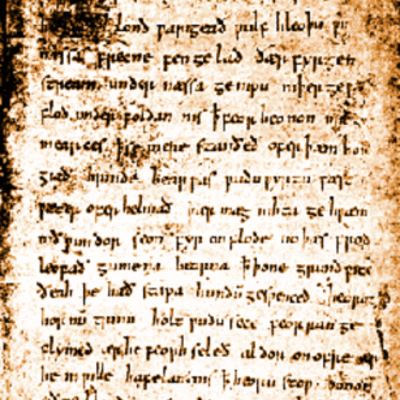 lond warigeað wulf hleoþu
næssas frecne fen gelad ðær fyrgen
stream under næssa genipu niþer ge
flod under foldan nis ꝥ feor heonon mil
mearces ꝥ se mere standeð ofer þam hon
giað hrinde bearwas wudu wyrtum fæst
wæter ofer helmað þær mæg nihta ge hwæm
nið wundor seon fyr on flode no þæs frod
leofað gumena bearna ꝥ þone grund wite
ðeah þe hæð stapa hundū geswenced heorot
hornū trum holt wudu sece feorran ge
flymed ær he feorh seleð aldor on ofre ær
he in wille hafelan nis ꝥ heoru stow þonon